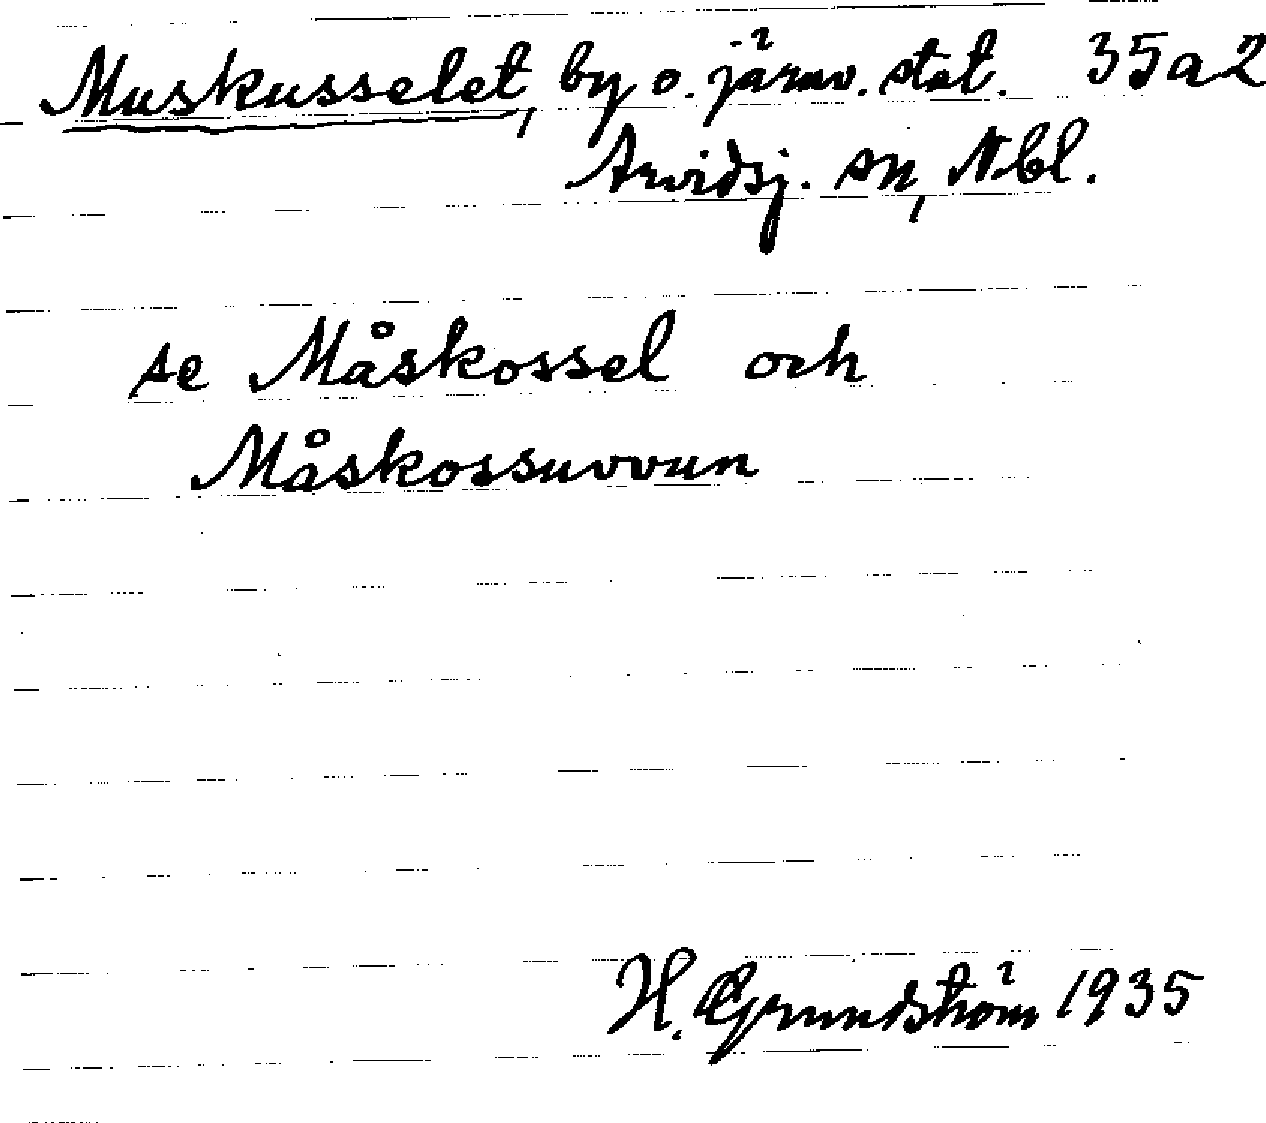 Muskusselet, by o. järnv. stat. 35a2
Arvidsj. sn, Nbl.
se Måskossel och
Måskossuvvun
H. Grundström 1935